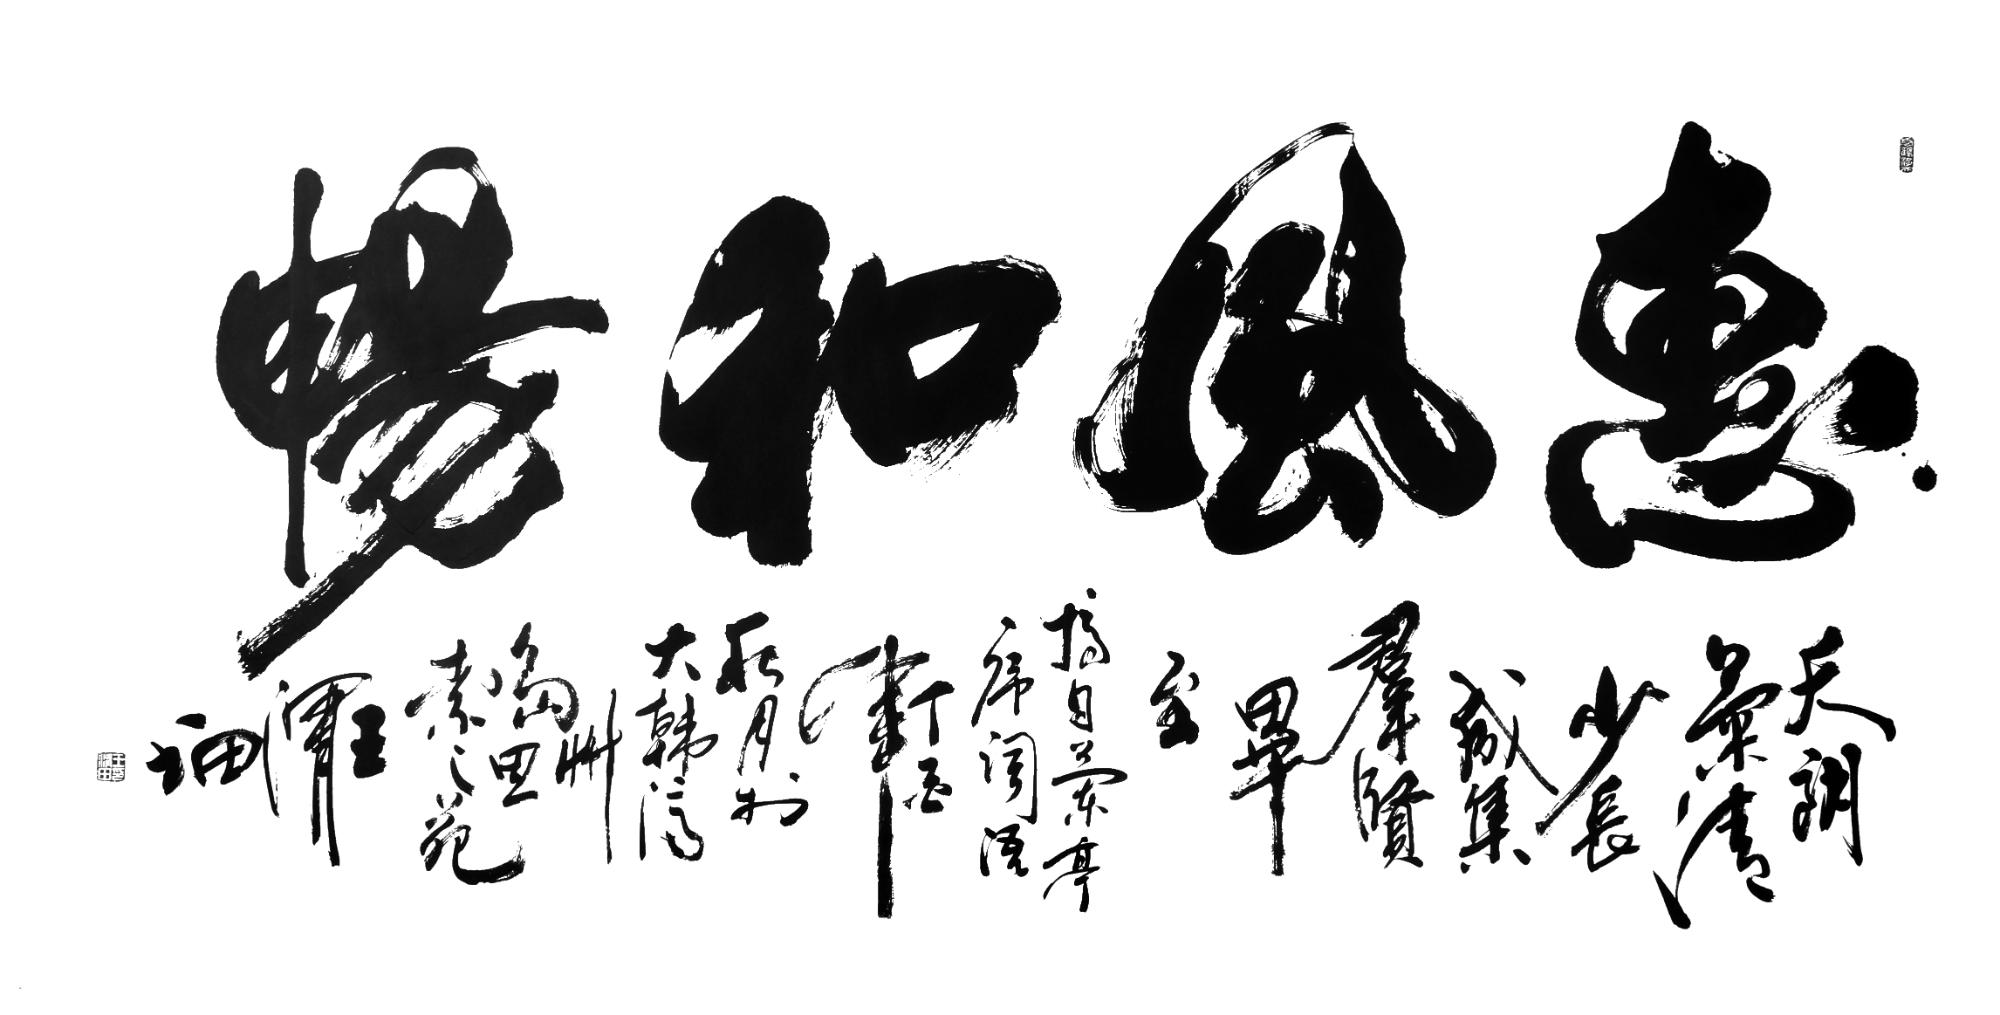 惠風和暢
天朗
氣清
少長
咸集
羣賢
畢
至
摘自蘭亭
序詞語
丁酉
秋月於
大韓濟
州
島思
索之苑
王
澤